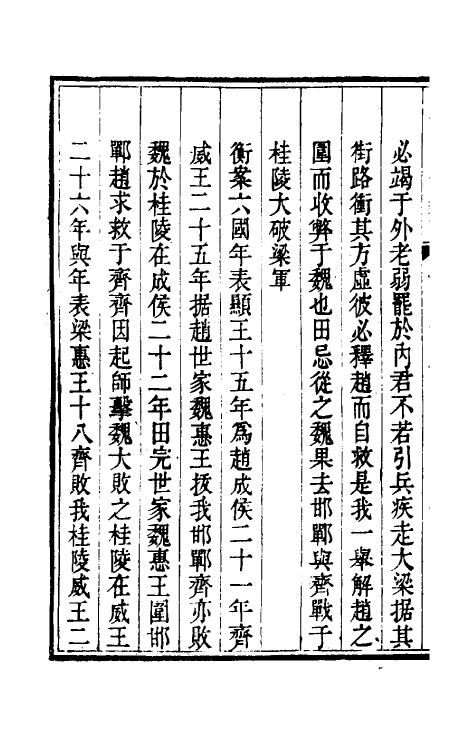 必竭于外老弱罷於內君不若引兵疾走大梁据其
街路衝其方虛彼必釋趙而自救是我一舉解趙之
圍而收弊于魏也田忌從之魏果去邯鄲與齊戰于
桂陵大破梁軍
衡案六國年表顯王十五年爲趙成侯二十一年齊
威王二十五年据趙世家魏惠王拔我邯鄲齊亦敗
魏於桂陵在成侯二十二年田完世家魏惠王圍邯
鄲趙求救于齊齊因起師擊魏大敗之桂陵在威王
二十六年與年表梁惠王十八齊敗我桂陵威王二